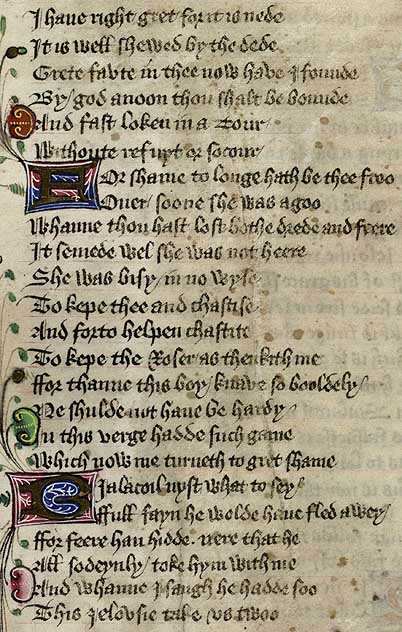 I haue right gret for it is nede
It is well shewed by the dede
Grete faute in thee now haue I founde
By god anoon thou shalt be bounde
And fast loken in a Tour
Withoute refuyt or socour
For shame to longe hath be thee froo
Ouer soone she was agoo
Whanne thou hast lost bothe drede and feere
It semede wel she was not heere
She was bisy in no wyse
To kepe thee and chastise
And forto helpen chastite
To kepe the Roser as thenkith me
ffor thanne this boy knaue so booldely
Ne shulde not haue be hardy
In this verge hadde such game
Which now me turneth to gret shame
Bialacoil nyst what to sey
ffull fayn he wolde haue fled awey
ffor feere han hidde nere that he
All sodeynly toke hym with me
And whanne I saugh he hadde soo
This Ielousie take vs twoo